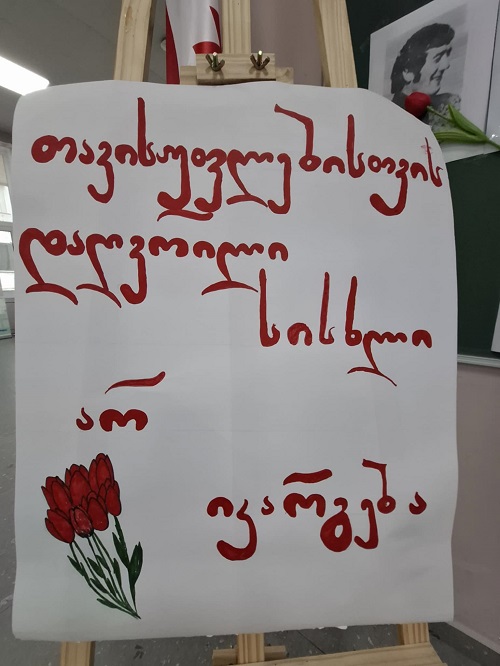 თავისუფლებისთვის
დაღვრილი
სისხლი
არ
იკარგება